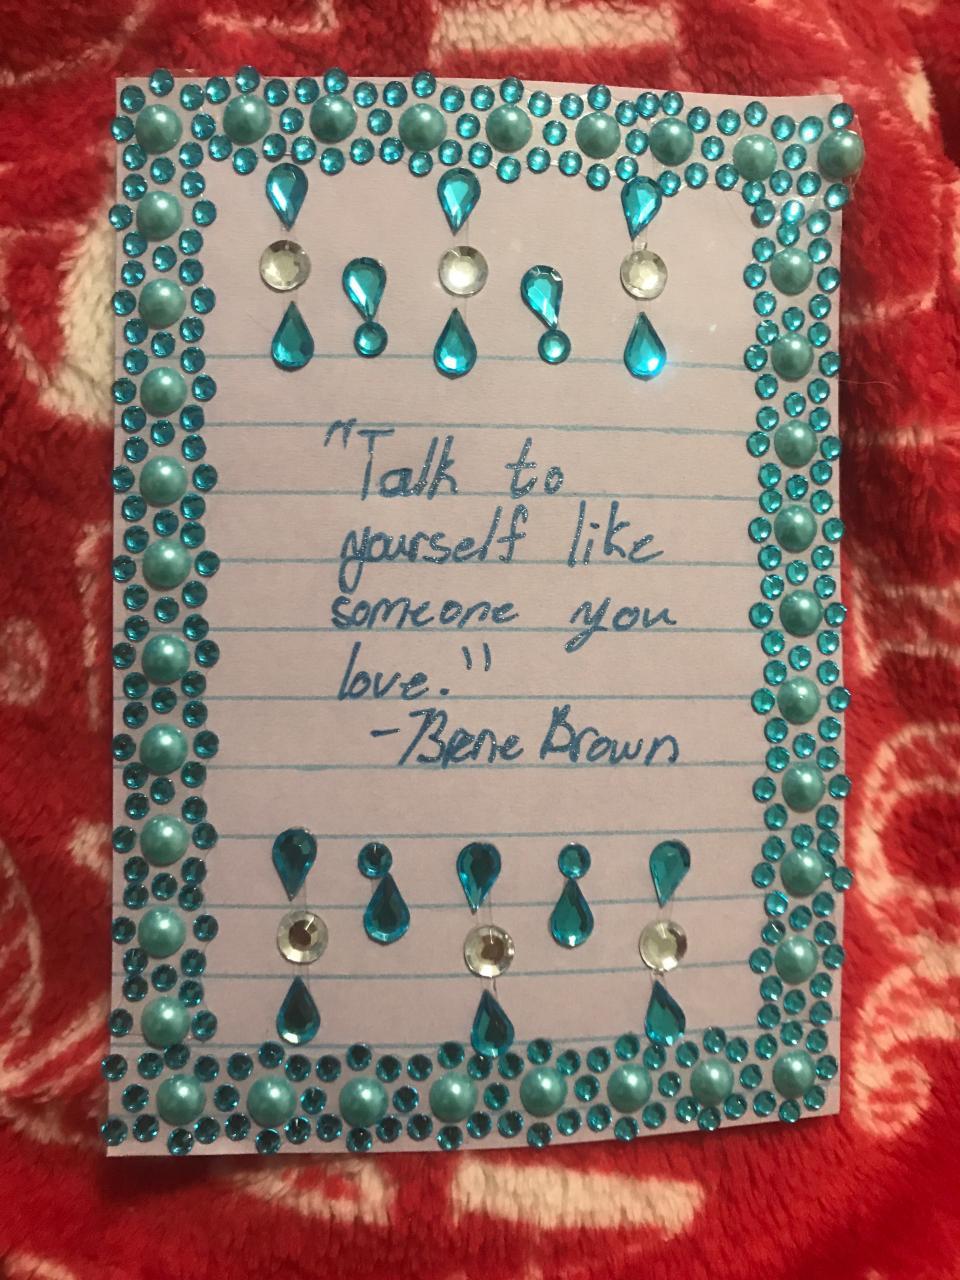 "Talk to
yourself like
someone you
love."
-Brene Brown